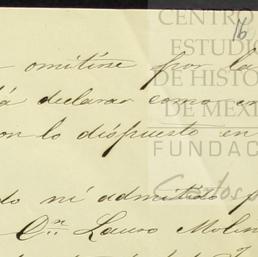 CENTRO
ESTUDI
DE HISTO
DE MEXI
FUNDAC
Carlos
16
omitirse por la
declarar como
on lo dispuesto en
do ni admitido p
Dn. Lauro Molin